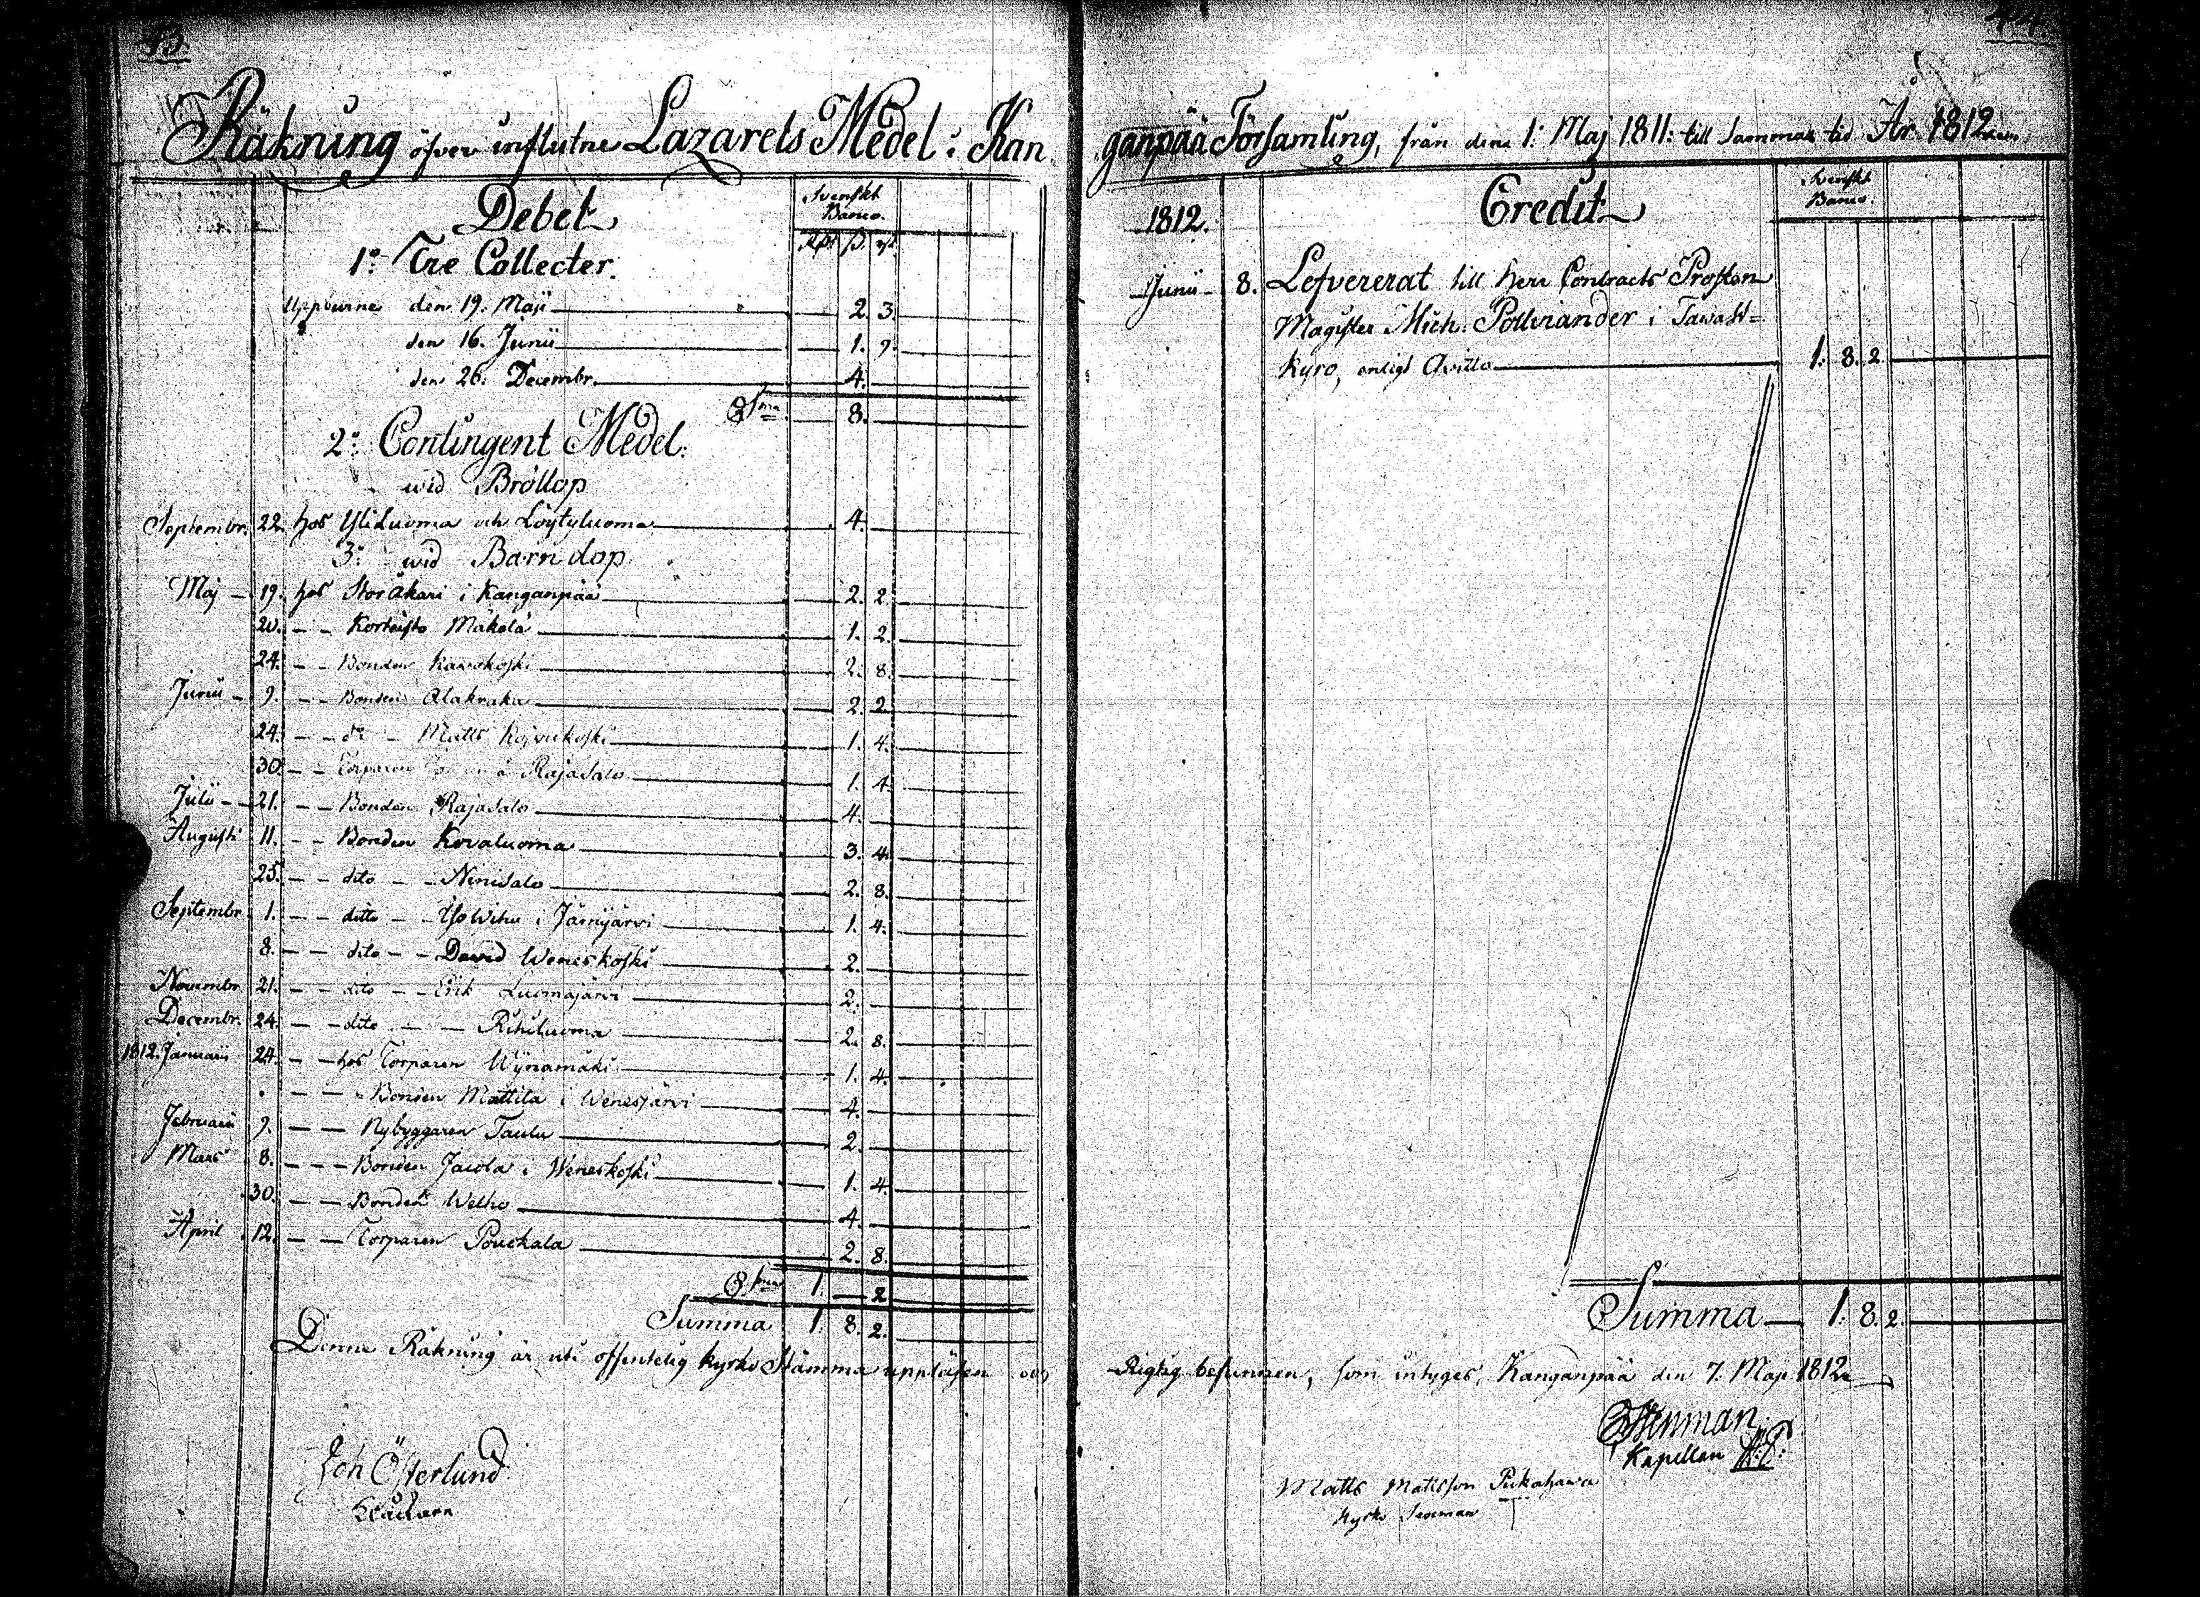 43.
Räkning öfver influtne Lazarets Medel i Kan
Debet
Svenskt
Banco.
Rdr ß. rst.
1:o Tre Collecter.
Uppburne den 19. Maji 2. 3.
den 16. Junii 1. 9.
den 26. Decembr. 4.
Sma 8.
2:o Contingent Medel.
wid Bröllop
Septembr. 22. hos Yliluoma och Löytyluoma 4.
3:o wid Barndop
Maj 19. hos Storåkari i Kanganpää 2. 2.
20. Korteisto Mäkelä 1. 2.
24. Bonden 2. 8.
Junii 9. Bonden Alakraka 2. 2.
24. do Matts 1. 4.
30. Torparen å Rajasalo 1. 4.
Julii 21. Bonden Rajasalo 4.
Augusti 11. Bonden Kovaluoma 3. 4.
25. dito Ninisalo 2. 8.
Septembr. 1. ditto i Jämijärvi 1. 4.
8. dito David Weneskoski 2.
Novembr. 21. dito Erik Luomajärvi 2.
Decembr. 24. dito Rihiluoma 2. 8.
1812. Januarii 24. hos Torparen Wynämäki 1. 4.
Bonden Mattila i Wenesjärvi 4.
Februarii 9. Nybyggaren Taulu 2.
Mars 8. Bonden Jacola i Weneskoski 1. 4.
30. Bonden Welho 4.
April 12. Torparen Pouckala 2. 8.
Sma 1. — 2
Summa 1. 8. 2.
Denne Räkning är uti offentelig kyrko Stämma uppläsen och
Joh Österlund
44.
ganpää Församling, från den 1: Maj 1811: till samma tid År 1812
1812.
Credit
Svenskt
Banco.
Junii 8. Lefvererat till Herr Contracts Prosten
Magister Mich: Pollviander i Tawast=
kyro, enligt Qvitto 1. 8. 2.
Summa 1. 8. 2.
Rigtig befunnen, som intyges, Kanganpää den 7. Maji 1812
Stenman
Kapellan
Matts Matsson
Kyrko